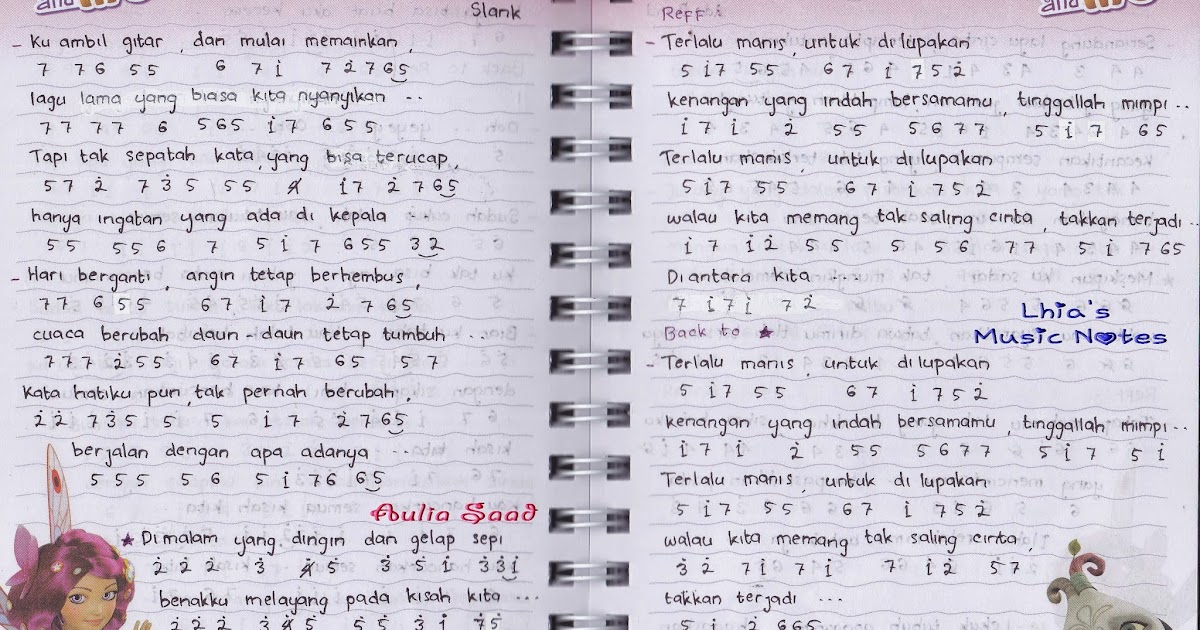 Slank
- Ku ambil gitar , dan mulai memainkan ,
7 76 55 6 7 i̇ 7 2̇ 7 6 5
lagu lama yang biasa kita nyanyikan ..
77 77 6 565 i̇7 655
Tapi tak sepatah kata, yang bisa terucap,
57 2̇ 7 3̇ 5 55 i̇7 2̇ 765
hanya ingatan yang ada di kepala ..
55 556 7 5 i̇ 7 655 3̇2̇
- Hari berganti , angin tetap berhembus ,
77 6 5 5 67 i̇7 2̇ 7 65
cuaca berubah daun - daun tetap tumbuh ...
777 2̇55 67 i̇7 65 57
Kata hatiku pun , tak pernah berubah , .
2̇2̇ 7 3̇ 5 5 5 i̇ 7 2̇ 765
berjalan dengan apa adanya ...
555 56 5 i̇ 76 65
Aulia Saad
★ Dimalam yang dingin dan gelap sepi
2̇ 2̇ 2̇ 3̇ 5 3̇ 5 i̇ 3̇3̇i̇
benakku melayang pada kisah kita ...
2̇ 2̇ 2̇ 3̇ 5 55 3̇ i̇ 75
Reff
- Terlalu manis , untuk dilupakan
5 i̇7 55 67 i̇ 7 5 2̇
kenangan yang indah bersamamu , tinggallah mimpi ..
i̇ 7 i̇ 2̇ 55 5677 5 i̇ 7 65
Terlalu manis , untuk dilupakan
5 i̇7 55 67 i̇ 7 5 2̇
walau kita memang tak saling cinta , takkan terjadi ..
i̇ 7 i̇2̇ 55 5 56 77 5 i̇ 765
Diantara kita ...
7 i̇7i̇ 72̇
Back to ★
Lhia's
Music Notes
- Terlalu manis , untuk dilupakan
5 i̇7 55 67 i̇ 7 5 2̇
kenangan yang indah bersamamu , tinggallah mimpi ..
i̇ 7 i̇ 2̇ 55 5677 5 i̇ 7 5 i̇
Terlalu manis , untuk dilupakan
5 i̇7 55 67 i̇ 7 5 2̇
walau kita memang tak saling cinta ,
3̇ 2̇ 7i̇ 7i̇ 7 i̇2̇ 57
takkan terjadi ...
5 i̇ 2̇ 665